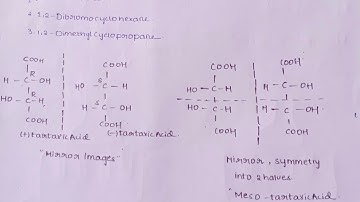 2. 1,2-Dibromocyclohexane
3. 1,2-Dimethylcyclopropane
COOH
H - C - OH
R
HO - C - H
R
COOH
(+) tartaric Acid
COOH
HO - C - H
S
H - C - OH
S
COOH
(-) tartaric Acid
"Mirror Images"
COOH
HO - C - H
HO - C - H
COOH
COOH
H - C - OH
H - C - OH
COOH
Mirror, symmetry
into 2 halves
"Meso-tartaric Acid